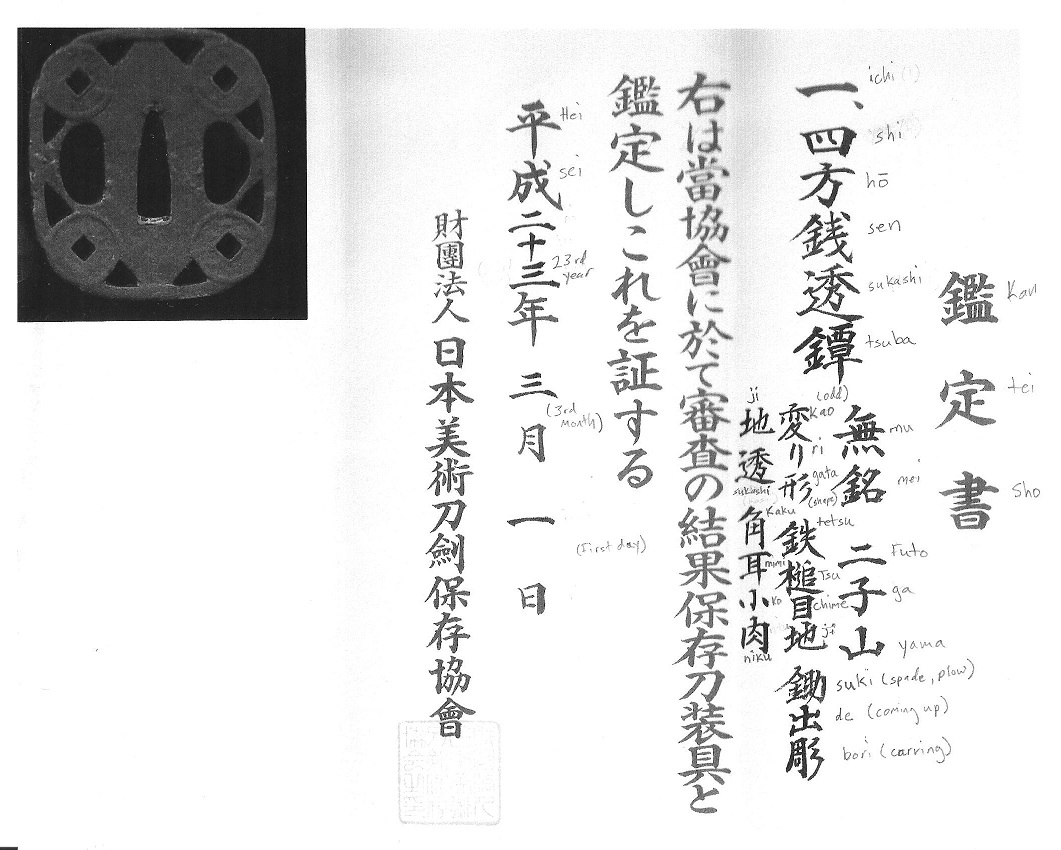 鑑定書
Kan
tei
Sho
一、四方銭透鐔
ichi (1)
shi
hō
sen
sukashi
tsuba
無銘 二子山
mu
mei
Futo
ga
yama
変り形 鉄槌目地 鋤出彫
(odd)
Kao
ri
gata
(shape)
tetsu
Tsu
chime
ji
suki (spade, plow)
de (coming up)
bori (carving)
地透 角耳小肉
ji
sukashi
Kaku
mimi
Ko
niku
右は當協會に於て審査の結果保存刀装具と
鑑定しこれを証する
平成二十三年 三月 一日
Hei
sei
23rd
year
(3rd
Month)
(First day)
財團法人 日本美術刀劍保存協會